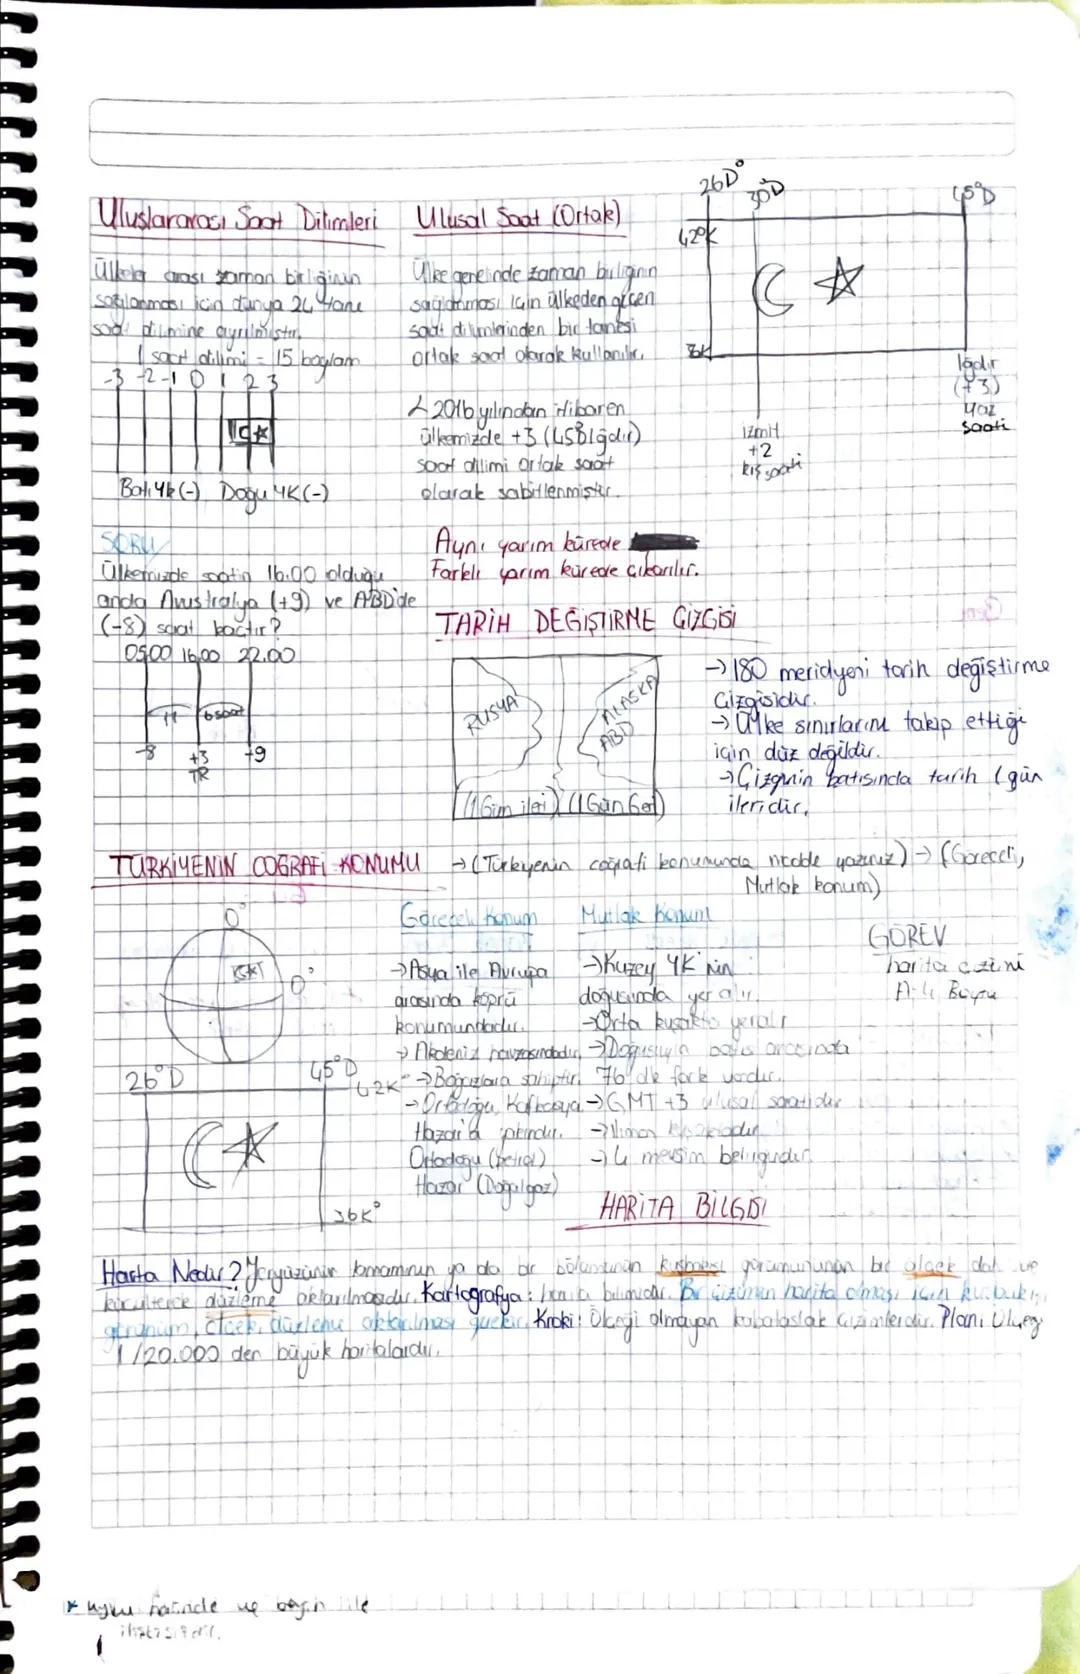 Uluslararası Saat Dilimleri
Ülkeler arası zaman birliğinin
sağlanması için dünya 24 tane
saat dilimine ayrılmıştır.
1 saat dilimi = 15 boylam
-3 -2 -1 0 1 2 3
Batı YK (-) Doğu YK (-)
Ulusal Saat (Ortak)
Ülke genelinde zaman birliğinin
sağlanması için ülkeden geçen
saat dilimlerinden bir tanesi
ortak saat olarak kullanılır.
2016 yılından itibaren
ülkemizde +3 (45D Iğdır)
saat dilimi ortak saat
olarak sabitlenmiştir.
26D° 30°D 45°D
42°K
Iğdır
(+3)
yaz
saati
izmit
+2
kış saati
SORU
Ülkemizde saatin 16.00 olduğu
anda Avustralya (+9) ve ABD'de
(-8) saat kaçtır?
05.00 16.00 22.00
11 6 saat
-8 +3 +9
TR
Aynı yarım kürede
Farklı yarım kürede çıkarılır.
TARİH DEĞİŞTİRME ÇİZGİSİ
RUSYA
ALASKA
ABD
(1 Gün ileri) (1 Gün Geri)
→ 180 meridyeni tarih değiştirme
çizgisidir.
→ Ülke sınırlarını takip ettiği
için düz değildir.
→ Çizginin batısında tarih 1 gün
ileridir.
TÜRKİYENİN COĞRAFİ KONUMU → (Türkiyenin coğrafi konumunda yazınız) → (Göreceli,
Mutlak konum)
0°
0°
26°D 45°D
42K°
36K°
Göreceli Konum
→ Asya ile Avrupa
arasında köprü
konumundadır.
→ Akdeniz havzasındadır.
→ Boğazlara sahiptir.
→ Ortadoğu, Kafkasya
Hazar'a yakındır.
Ortadoğu (petrol)
Hazar (Doğalgaz)
Mutlak Konum
→ Kuzey YK'nin
doğusunda yer alır.
→ Orta kuşakta yer alır
→ Doğusuyla batısı arasında
76 dk fark vardır.
→ GMT +3 ulusal saatidir
→ 4 mevsim belirgindir.
GÖREV
harita çizimi
A-4 Boyu
HARİTA BİLGİSİ
Harita Nedir? Yeryüzünün tamamının ya da bir bölümünün kuşbakışı görünümünün bir ölçek dahilinde
küçülterek düzleme aktarılmasıdır. Kartografya: harita bilimidir. Bir çizimin harita olması için kuşbakışı
görünüm, ölçek, düzleme aktarılması gerekir. Kroki: Ölçeği olmayan kabataslak çizimlerdir. Plan: Ölçeği
1/20.000 den büyük haritalardır.